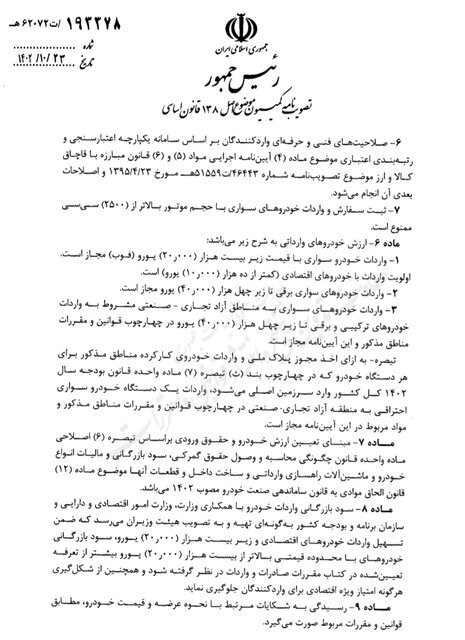 ۱۹۳۳۷۸/ت۶۲۰۷۲هـ
شماره
۱۴۰۲/۱۰/۲۳
تاریخ
جمهوری اسلامی ایران
رئیس جمهور
تصویب نامه کمیسیون موضوع اصل ۱۳۸ قانون اساسی
۶- صلاحیت‌های فنی و حرفه‌ای واردکنندگان بر اساس سامانه یکپارچه اعتبارسنجی و
رتبه‌بندی اعتباری موضوع ماده (۴) آیین‌نامه اجرایی مواد (۵) و (۶) قانون مبارزه با قاچاق
کالا و ارز موضوع تصویب‌نامه شماره ۴۶۴۴۳/ت۵۱۵۵۹هـ مورخ ۱۳۹۵/۴/۲۳ و اصلاحات
بعدی آن انجام می‌شود.
۷- ثبت سفارش و واردات خودروهای سواری با حجم موتور بالاتر از (۲۵۰۰) سی‌سی
ممنوع است.
ماده ۶- ارزش خودروهای وارداتی به شرح زیر می‌باشد:
۱- واردات خودرو سواری با قیمت زیر بیست هزار (۲۰٫۰۰۰) یورو (فوب) مجاز است.
اولویت واردات با خودروهای اقتصادی (کمتر از ده هزار (۱۰٫۰۰۰) یورو) است.
۲- واردات خودروهای سواری برقی تا زیر چهل هزار (۴۰٫۰۰۰) یورو مجاز است.
۳- واردات خودروهای سواری به مناطق آزاد تجاری - صنعتی مشروط به واردات
خودروهای ترکیبی و برقی تا زیر چهل هزار (۴۰٫۰۰۰) یورو در چهارچوب قوانین و مقررات
مناطق مذکور و این آیین‌نامه مجاز است.
تبصره- به ازای اخذ مجوز پلاک ملی و واردات خودروی کارکرده مناطق مذکور برای
هر دستگاه خودرو که در چهارچوب بند (ث) تبصره (۷) ماده واحده قانون بودجه سال
۱۴۰۲ کل کشور وارد سرزمین اصلی می‌شود، واردات یک دستگاه خودرو سواری
احتراقی به منطقه آزاد تجاری-صنعتی در چهارچوب قوانین و مقررات مناطق مذکور و
مواد مربوط در این آیین‌نامه مجاز است.
ماده ۷- مبنای تعیین ارزش خودرو و حقوق ورودی براساس تبصره (۶) اصلاحی
ماده واحده قانون چگونگی محاسبه و وصول حقوق گمرکی، سود بازرگانی و مالیات انواع
خودرو و ماشین‌آلات راهسازی وارداتی و ساخت داخل و قطعات آنها موضوع ماده (۱۲)
قانون الحاق موادی به قانون ساماندهی صنعت خودرو مصوب ۱۴۰۲ می‌باشد.
ماده ۸- سود بازرگانی واردات خودرو با همکاری وزارت، وزارت امور اقتصادی و دارایی و
سازمان برنامه و بودجه کشور به‌گونه‌ای تهیه و به تصویب هیئت وزیران می‌رسد که ضمن
تسهیل واردات خودروهای اقتصادی و زیر بیست هزار (۲۰٫۰۰۰) یورو، سود بازرگانی
خودروهای با محدوده قیمتی بالاتر از بیست هزار (۲۰٫۰۰۰) یورو بیشتر از تعرفه
تعیین‌شده در کتاب مقررات صادرات و واردات در نظر گرفته شود و همچنین از شکل‌گیری
هرگونه امتیاز ویژه اقتصادی برای واردکنندگان جلوگیری نماید.
ماده ۹- رسیدگی به شکایات مرتبط با نحوه عرضه و قیمت خودرو، مطابق
قوانین و مقررات مربوط صورت می‌گیرد.